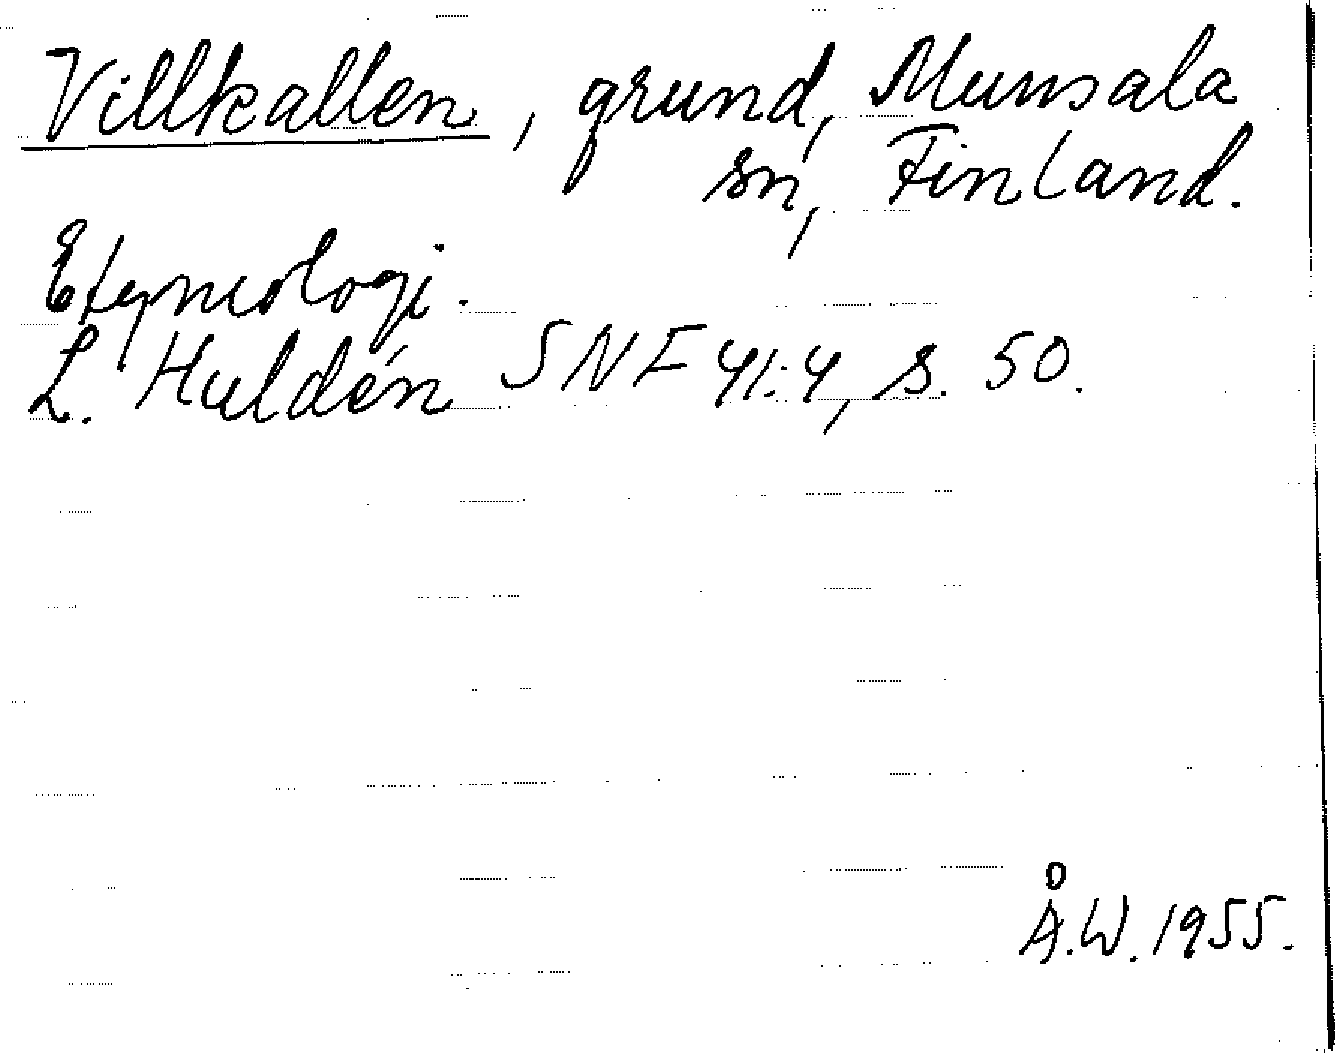 Villkallen, grund, Munsala
sn, Finland.
Etymologi.
L. Huldén SNF 41:4, s. 50.
Å.W. 1955.